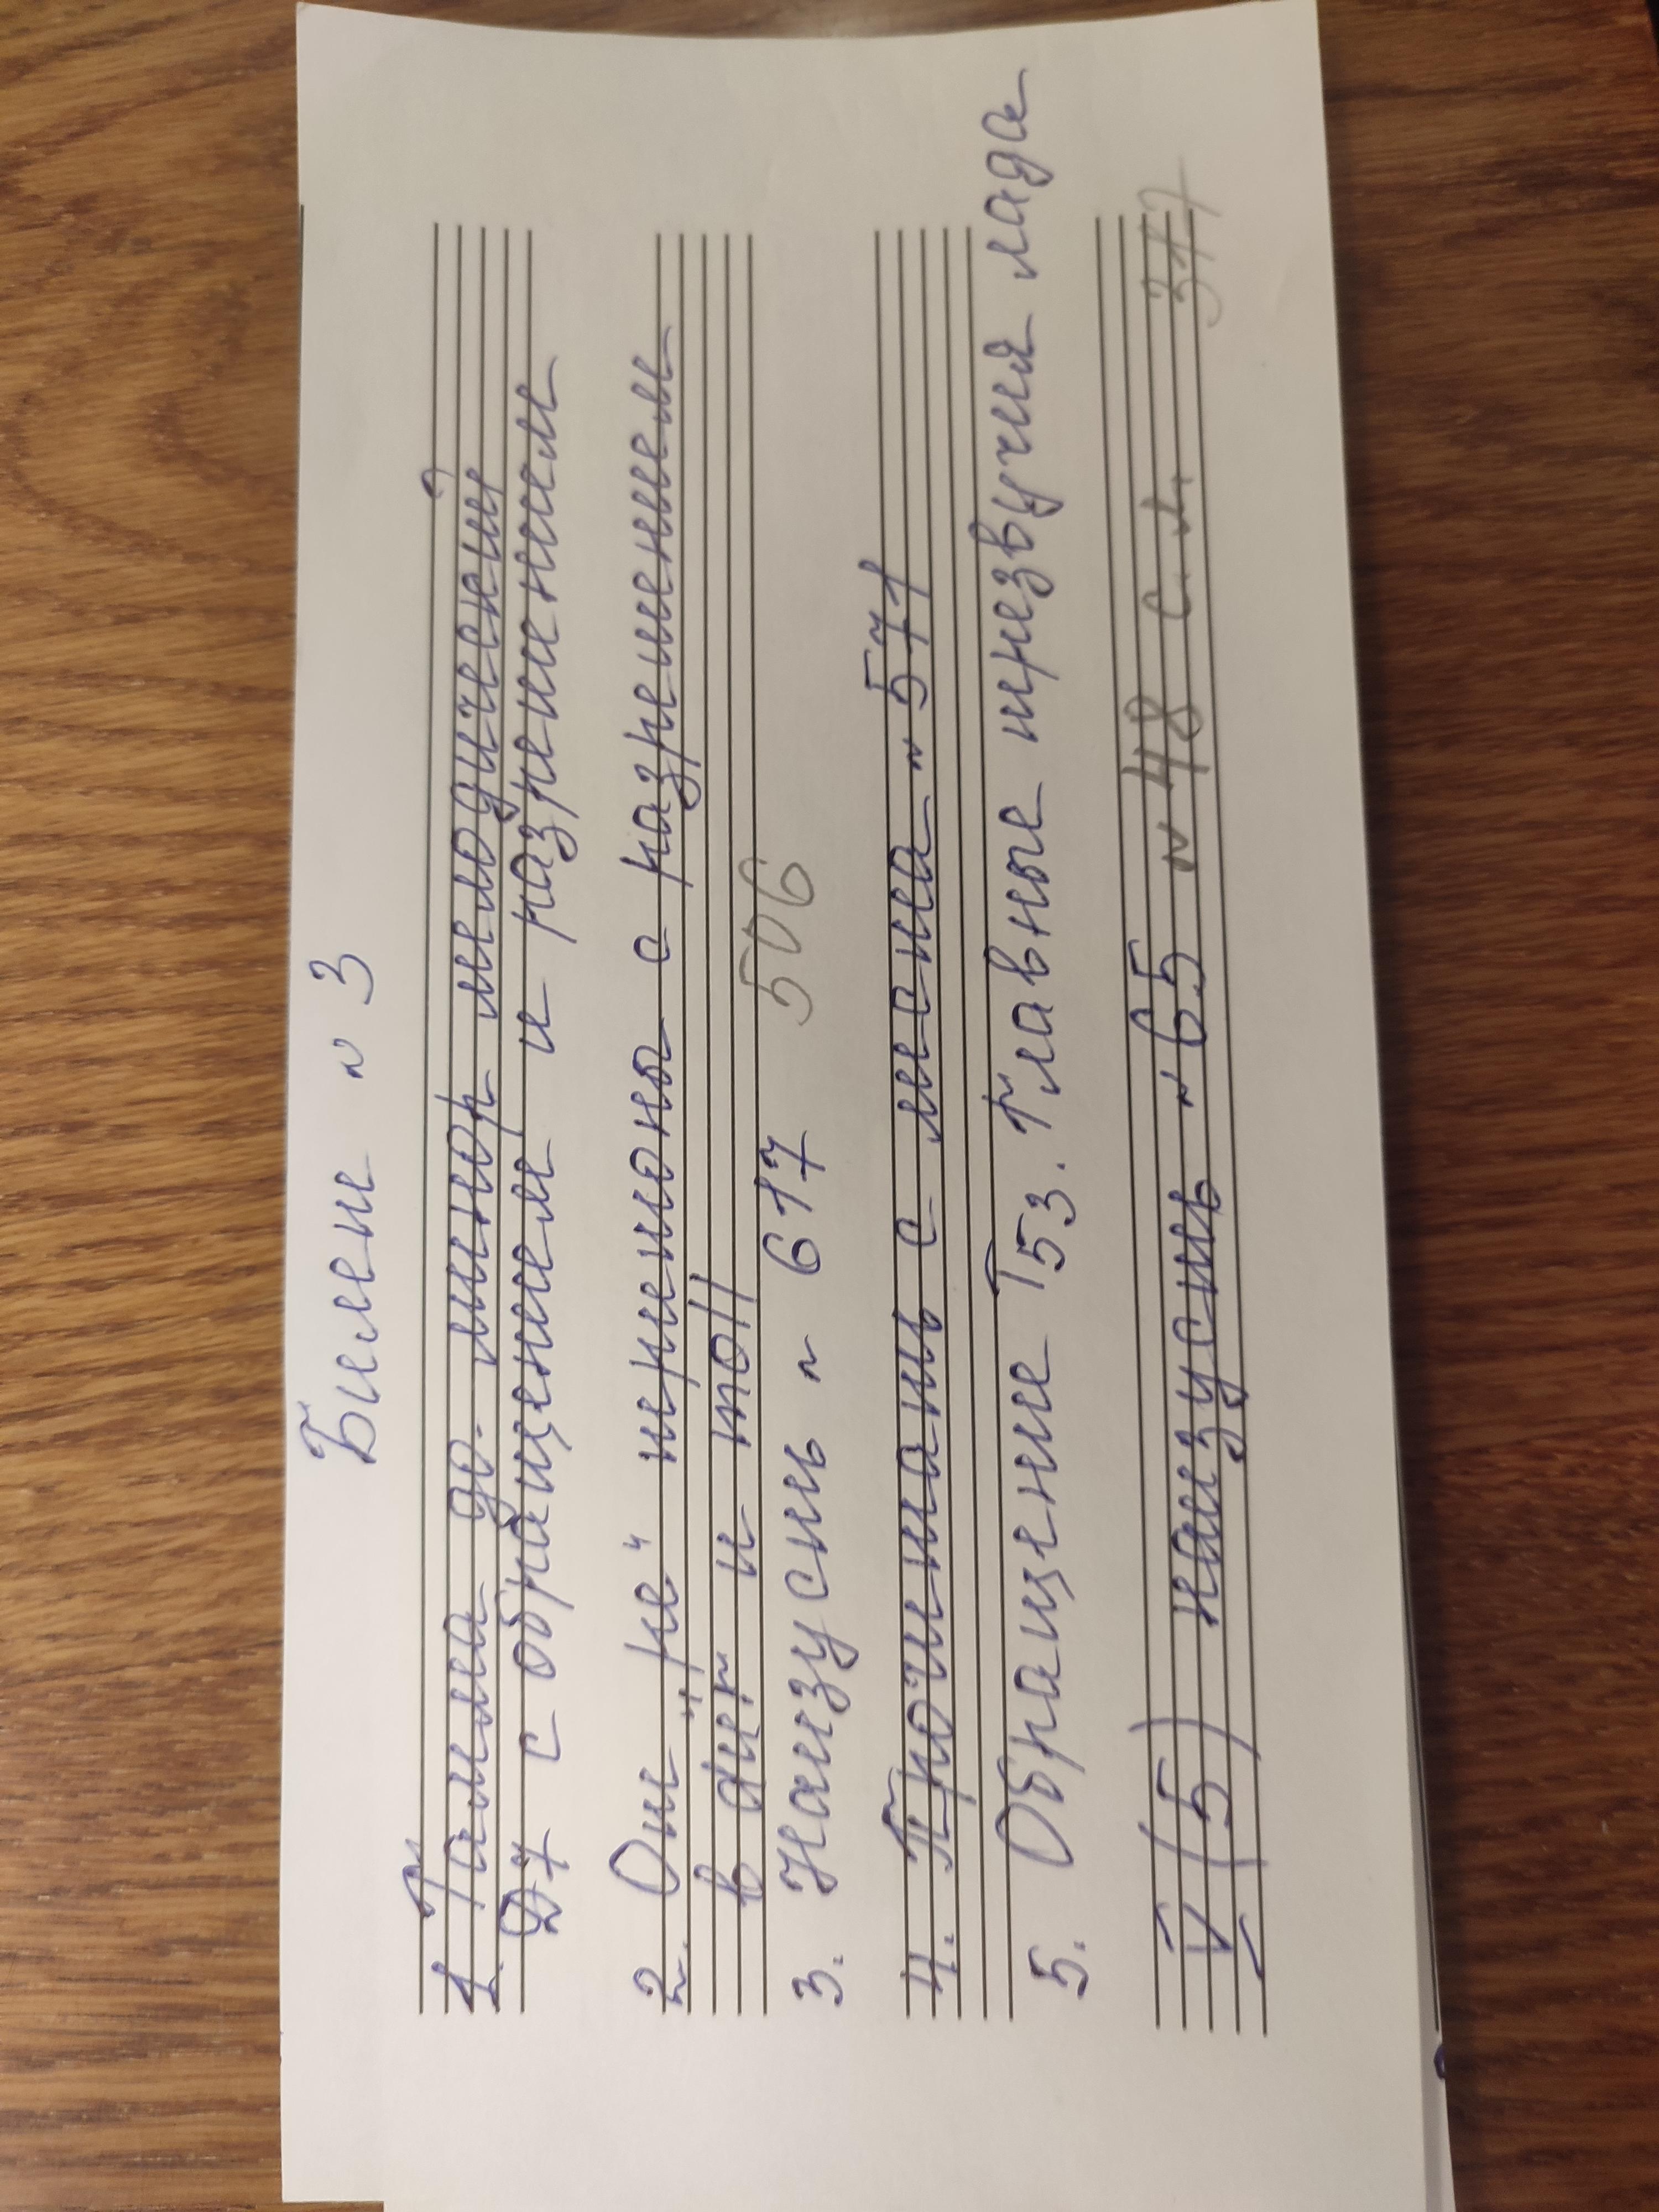 Билет № 3
1. Гамма до минор мелодический
D7 с обращением и разрешением
2. От "ре" тритоны с разрешением
в dur и moll
3. Наизусть № 617 506
4. Прочитать с листа № 571
5. Обращение Т53. Главные трезвучия лада
V (5) наизусть № 65 № 48 с. 37